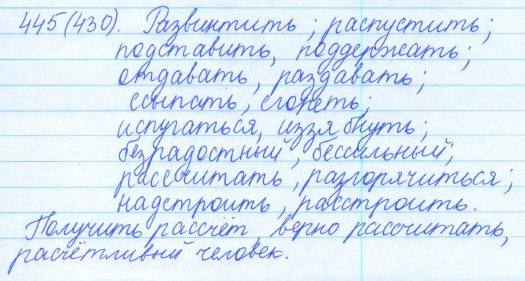 445(430). Развинтить; распустить;
подставить, поддержать;
отдавать, раздавать;
ссыпать, сгореть;
испугаться, иззябнуть;
безрадостный, бессильный;
рассчитать, разгорячиться;
надстроить, расстроить.
Получить рассчёт, верно рассчитать,
расчётливый человек.